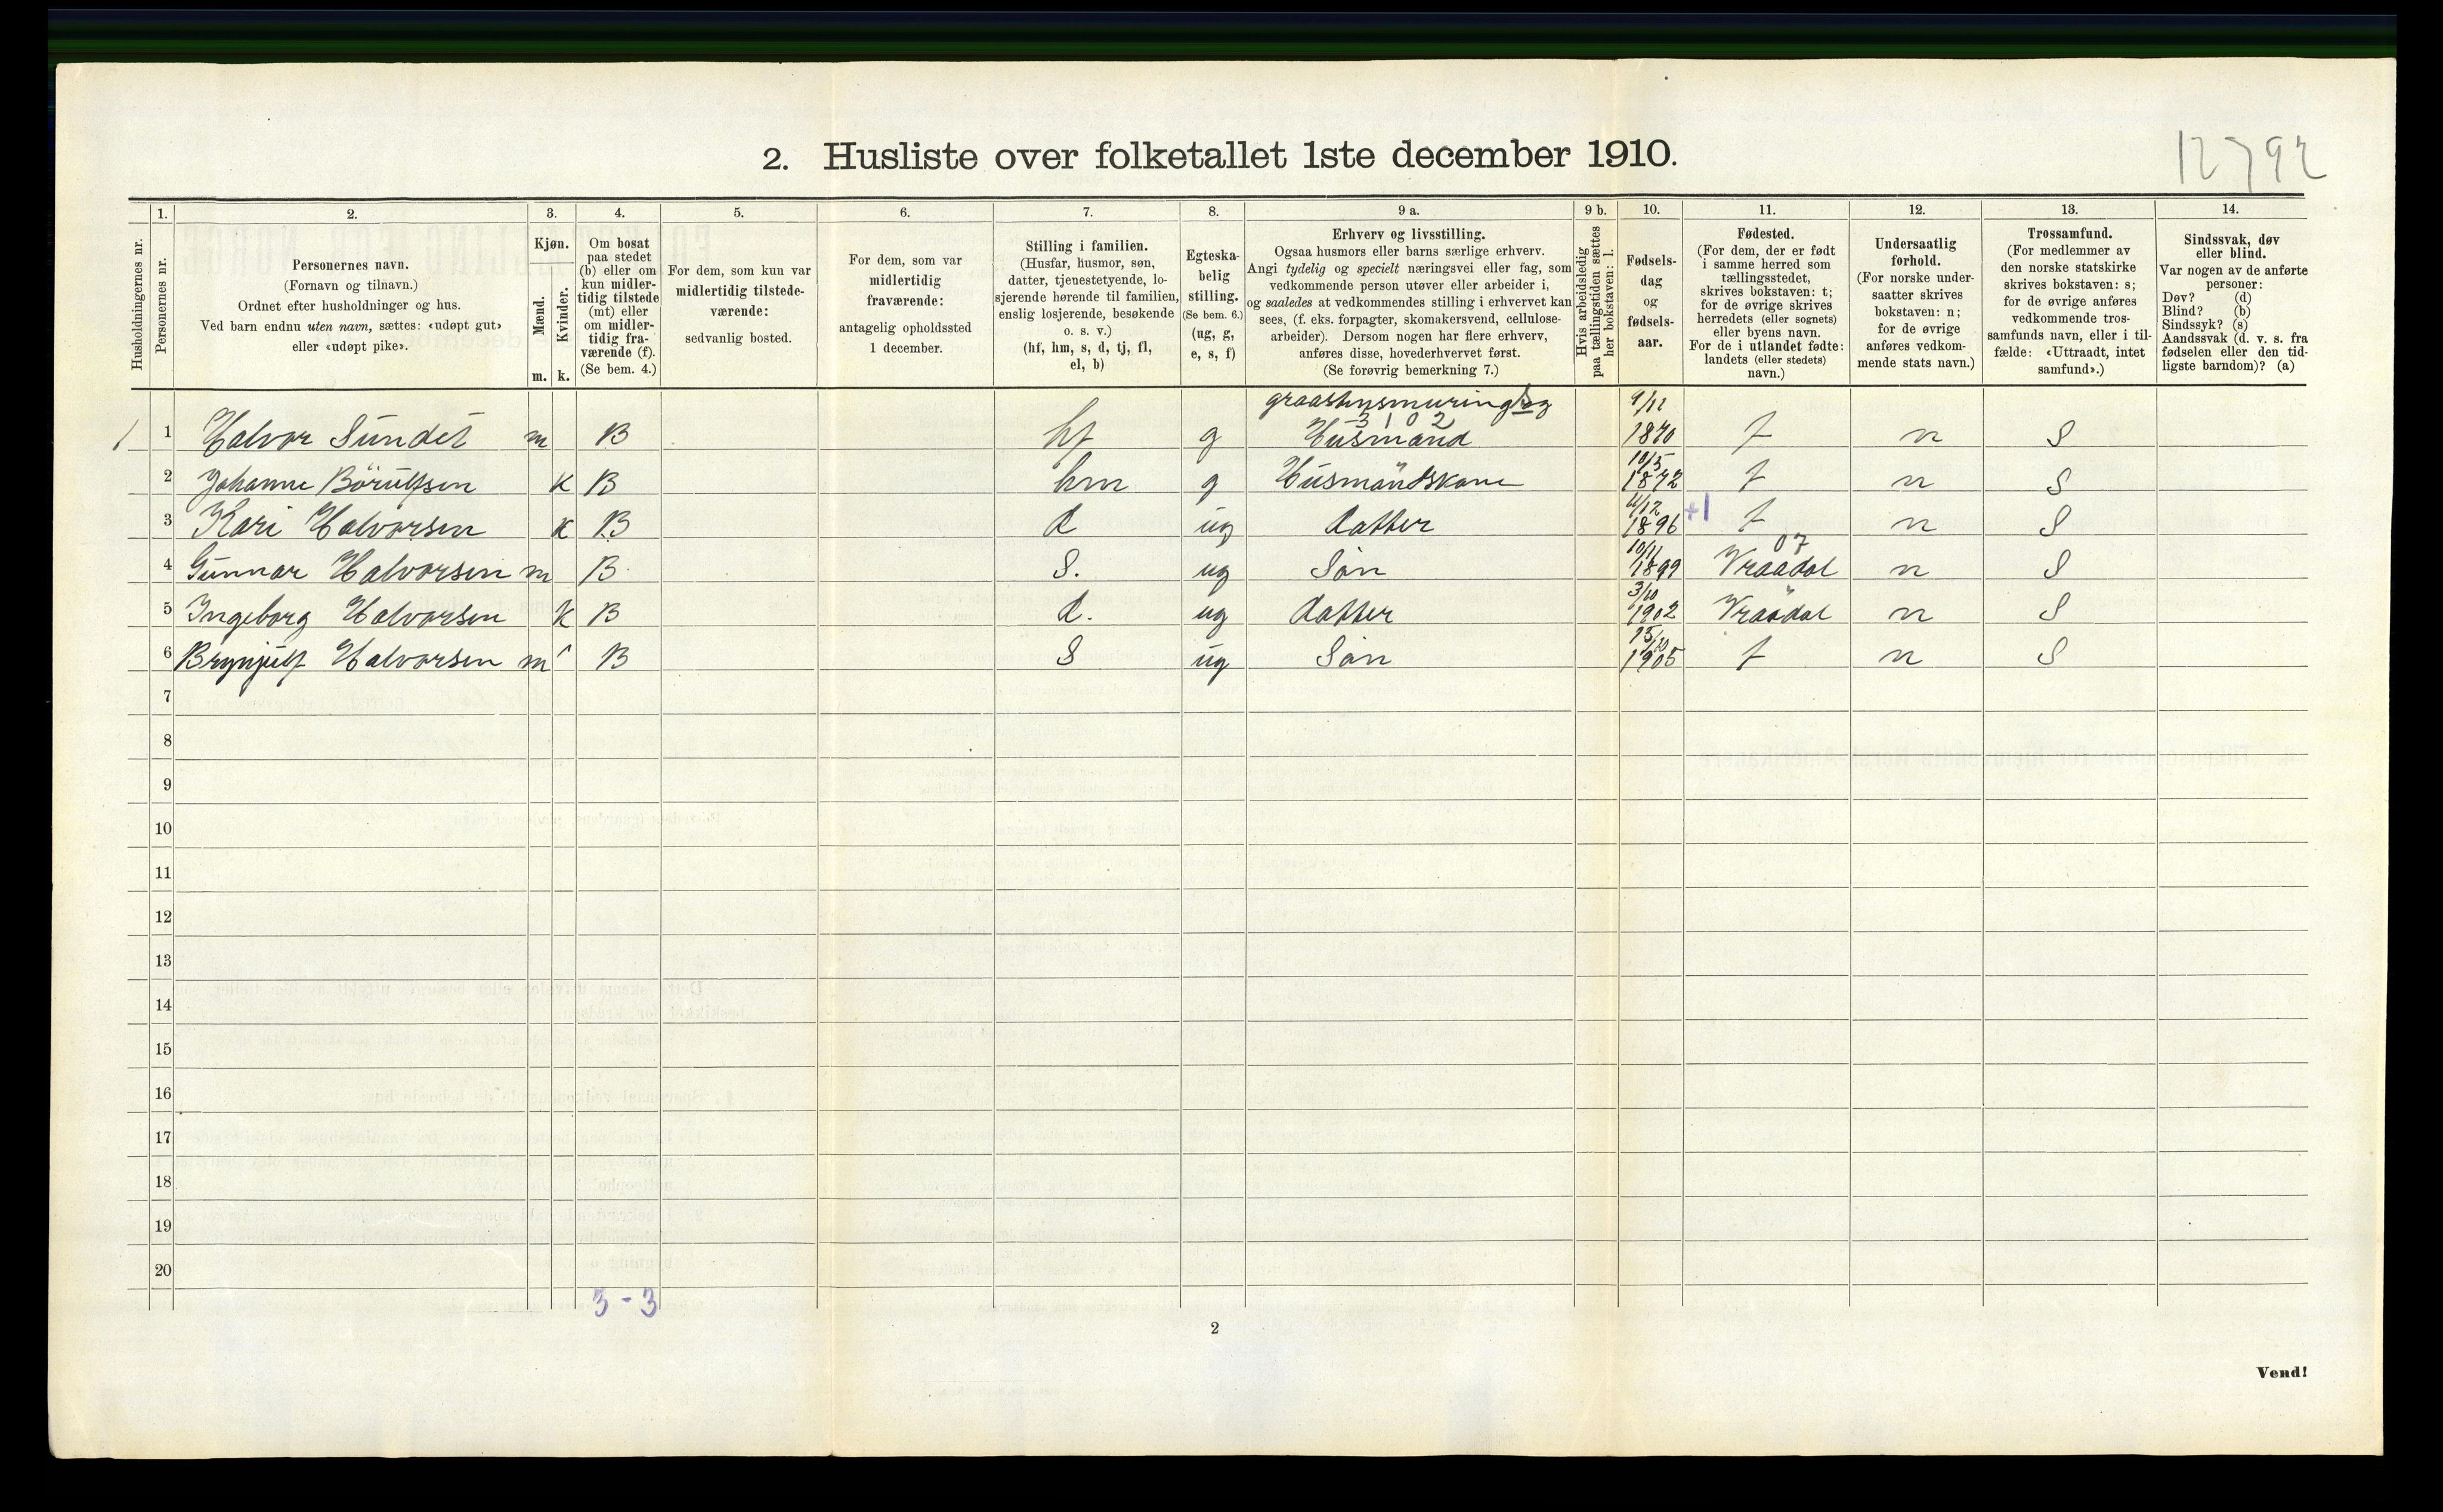 12792
2. Husliste over folketallet 1ste december 1910.
Husholdningernes nr.
1.
Personernes nr.
2.
Personernes navn.
(Fornavn og tilnavn.)
Ordnet efter husholdninger og hus.
Ved barn endnu uten navn, sættes: «udøpt gut»
eller «udøpt pike».
3.
Kjøn.
Mænd.
Kvinder.
m. k.
4.
Om bosat
paa stedet
(b) eller om
kun midler-
tidig tilstede
(mt) eller
om midler-
tidig fra-
værende (f).
(Se bem. 4.)
5.
For dem, som kun var
midlertidig tilstede-
værende:
sedvanlig bosted.
6.
For dem, som var
midlertidig
fraværende:
antagelig opholdssted
1 december.
7.
Stilling i familien.
(Husfar, husmor, søn,
datter, tjenestetyende, lo-
sjerende hørende til familien,
enslig losjerende, besøkende
o. s. v.)
(hf, hm, s, d, tj, fl,
el, b)
8.
Egteska-
belig
stilling.
(Se bem. 6.)
(ug, g,
e, s, f)
9 a.
Erhverv og livsstilling.
Ogsaa husmors eller barns særlige erhverv.
Angi tydelig og specielt næringsvei eller fag, som
vedkommende person utøver eller arbeider i,
og saaledes at vedkommendes stilling i erhvervet kan
sees, (f. eks. forpagter, skomakersvend, cellulose-
arbeider). Dersom nogen har flere erhverv,
anføres disse, hovederhvervet først.
(Se forøvrig bemerkning 7.)
9 b.
Hvis arbeidsledig
paa tællingstiden sættes
her bokstaven: l.
10.
Fødsels-
dag
og
fødsels-
aar.
11.
Fødested.
(For dem, der er født
i samme herred som
tællingsstedet,
skrives bokstaven: t;
for de øvrige skrives
herredets (eller sognets)
eller byens navn.
For de i utlandet fødte:
landets (eller stedets)
navn.)
12.
Undersaatlig
forhold.
(For norske under-
saatter skrives
bokstaven: n;
for de øvrige
anføres vedkom-
mende stats navn.)
13.
Trossamfund.
(For medlemmer av
den norske statskirke
skrives bokstaven: s;
for de øvrige anføres
vedkommende tros-
samfunds navn, eller i til-
fælde: «Uttraadt, intet
samfund».)
14.
Sindssvak, døv
eller blind.
Var nogen av de anførte
personer:
Døv? (d)
Blind? (b)
Sindssyk? (s)
Aandssvak (d. v. s. fra
fødselen eller den tid-
ligste barndom)? (a)
9/11
3 1 0 2
1 1 Halvor Sundet m B hf g Husmand 1870 t n S
2 Johanne Börulfsen K B hm g Husmandskone 10/5 1872 t n S
3 Kari Halvorsen K B d ug datter 1896 +1 t n S
07
4 Gunnar Halvorsen m B S. ug Søn 10/11 1899 Vraadal n S
5 Ingeborg Halvorsen K B d. ug datter 3/10 1902 Vraadal n S
6 Brynjulf Halvorsen m B S ug Søn 1905 t n S
7
8
9
10
11
12
13
14
15
16
17
18
19
20
3 - 3
2
Vend!